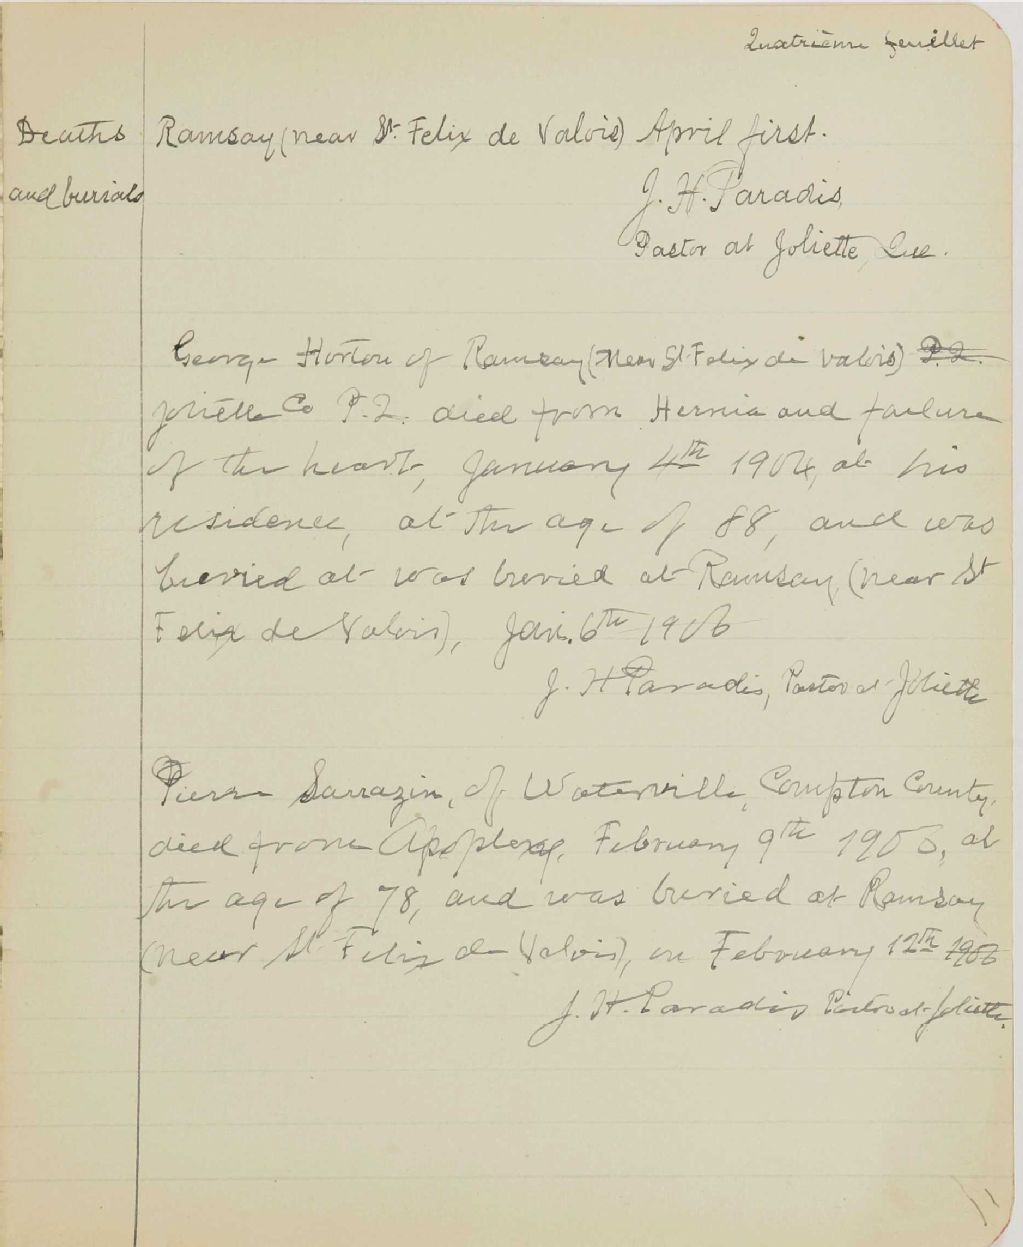 Quatrième feuillet
Deaths Ramsay (near St. Felix de Valois) April first.
and burials
J. H. Paradis,
Pastor at Joliette, Que.
George Horton of Ramsay (near St Felix de Valois) P.Q.
Joliette Co P.Q. died from Hernia and failure
of the heart, January 4th 1906, at his
residence, at the age of 88, and was
buried at was buried at Ramsay, (near St
Felix de Valois), Jan. 6th 1906
J. H Paradis, Pastor at Joliette
Pierre Sarrazin, of Waterville, Compton County,
died from Apoplexy, February 9th 1906, at
the age of 78, and was buried at Ramsay
(near St Felix de Valois), on February 12th 1906
J. H. Paradis Pastor at Joliette.